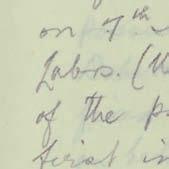 on 7th
Labs. (W
of the p
first in